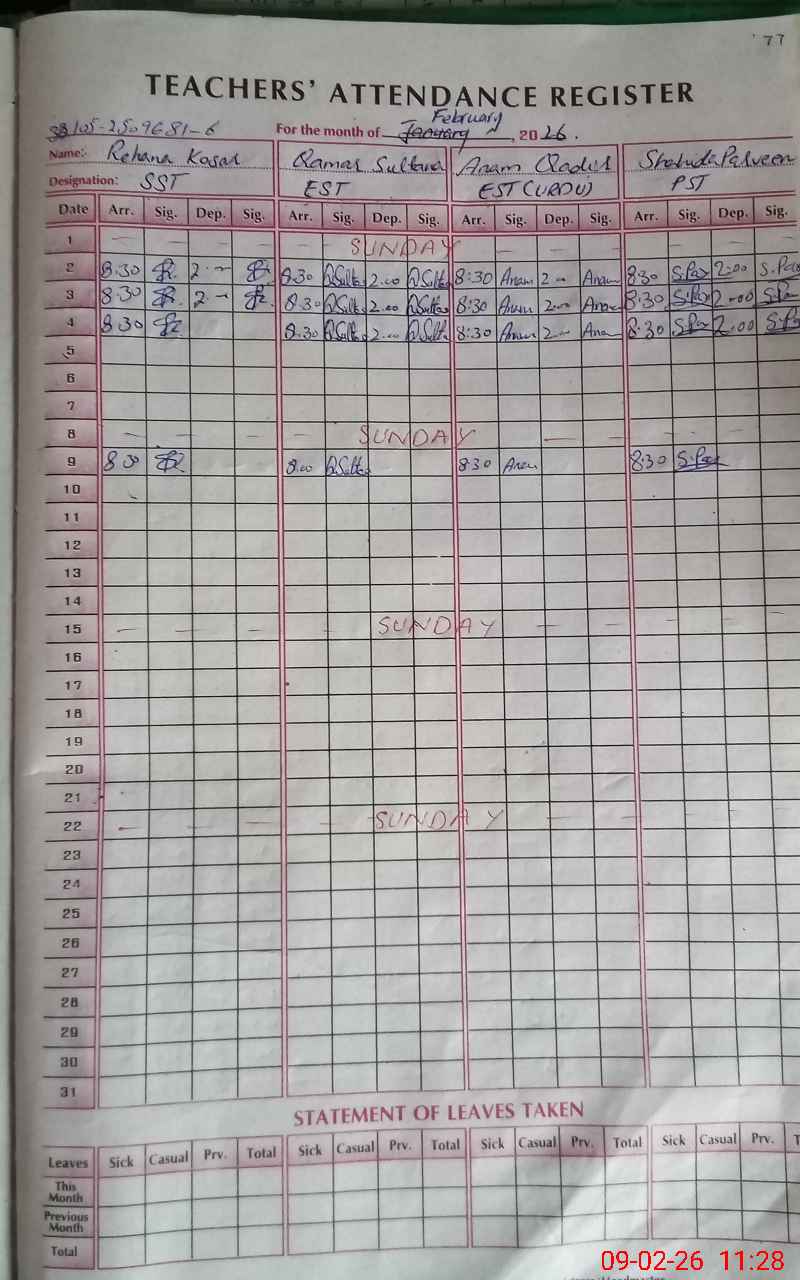 '77
TEACHERS' ATTENDANCE REGISTER
February
For the month of January, 2026.
Name:- Rehana Kasar Qamar Sultana Anam Qadir Shahida Parveen
Designation: SST EST EST (URDU) PST
Date Arr. Sig. Dep. Sig. Arr. Sig. Dep. Sig. Arr. Sig. Dep. Sig. Arr. Sig. Dep. Sig.
1 SUNDAY
2 8:30 2 - 8:30 2.00 8:30 Anam 2 - Anam 8:30 S.Par 2:00
3 8:30 2 - 8:30 2.00 8:30 Anam 2 - Anam 8:30 S.Par 2.00
4 8:30 8:30 2.00 8:30 Anam 2 - Anam 8:30 S.Par 2:00
5
6
7
8 SUNDAY
9 8 30 8:00 8:30 Anam 8:30 S.Par
10
11
12
13
14
15 SUNDAY
16
17
18
19
20
21
22 SUNDAY
23
24
25
26
27
28
29
30
31
STATEMENT OF LEAVES TAKEN
Leaves Sick Casual Prv. Total Sick Casual Prv. Total Sick Casual Prv. Total Sick Casual Prv. T
This Month
Previous Month
Total
09-02-26 11:28